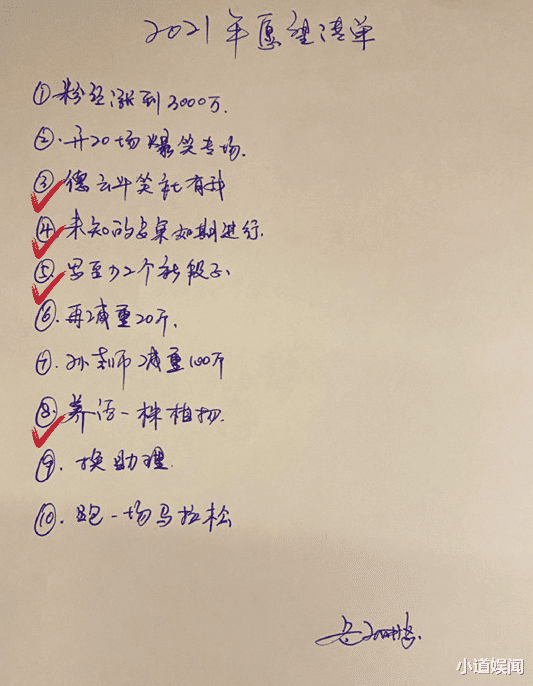 2021年愿望清单
①粉丝涨到3000万.
②.开20场爆笑专场.
③德云斗笑社有我
④.未知的专案如期进行.
⑤.写至少2个新段子.
⑥.再减重20斤.
⑦.孙老师减重100斤
⑧.养活一株植物.
⑨.换助理.
⑩.跑一场马拉松
岳云鹏.
小道娱闻